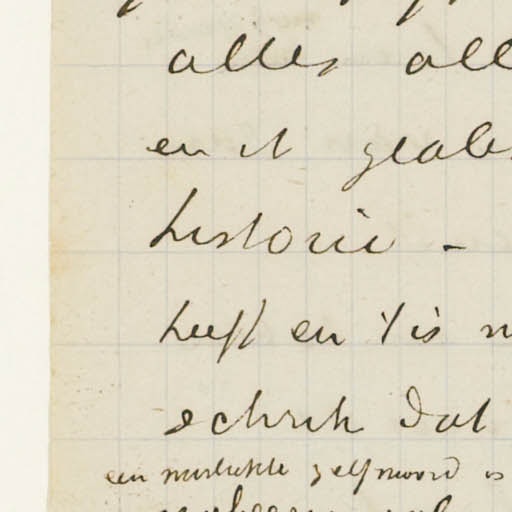 alles all
en it
historie -
heeft en 't is
schrik dat
een mislukte zelfmoord is